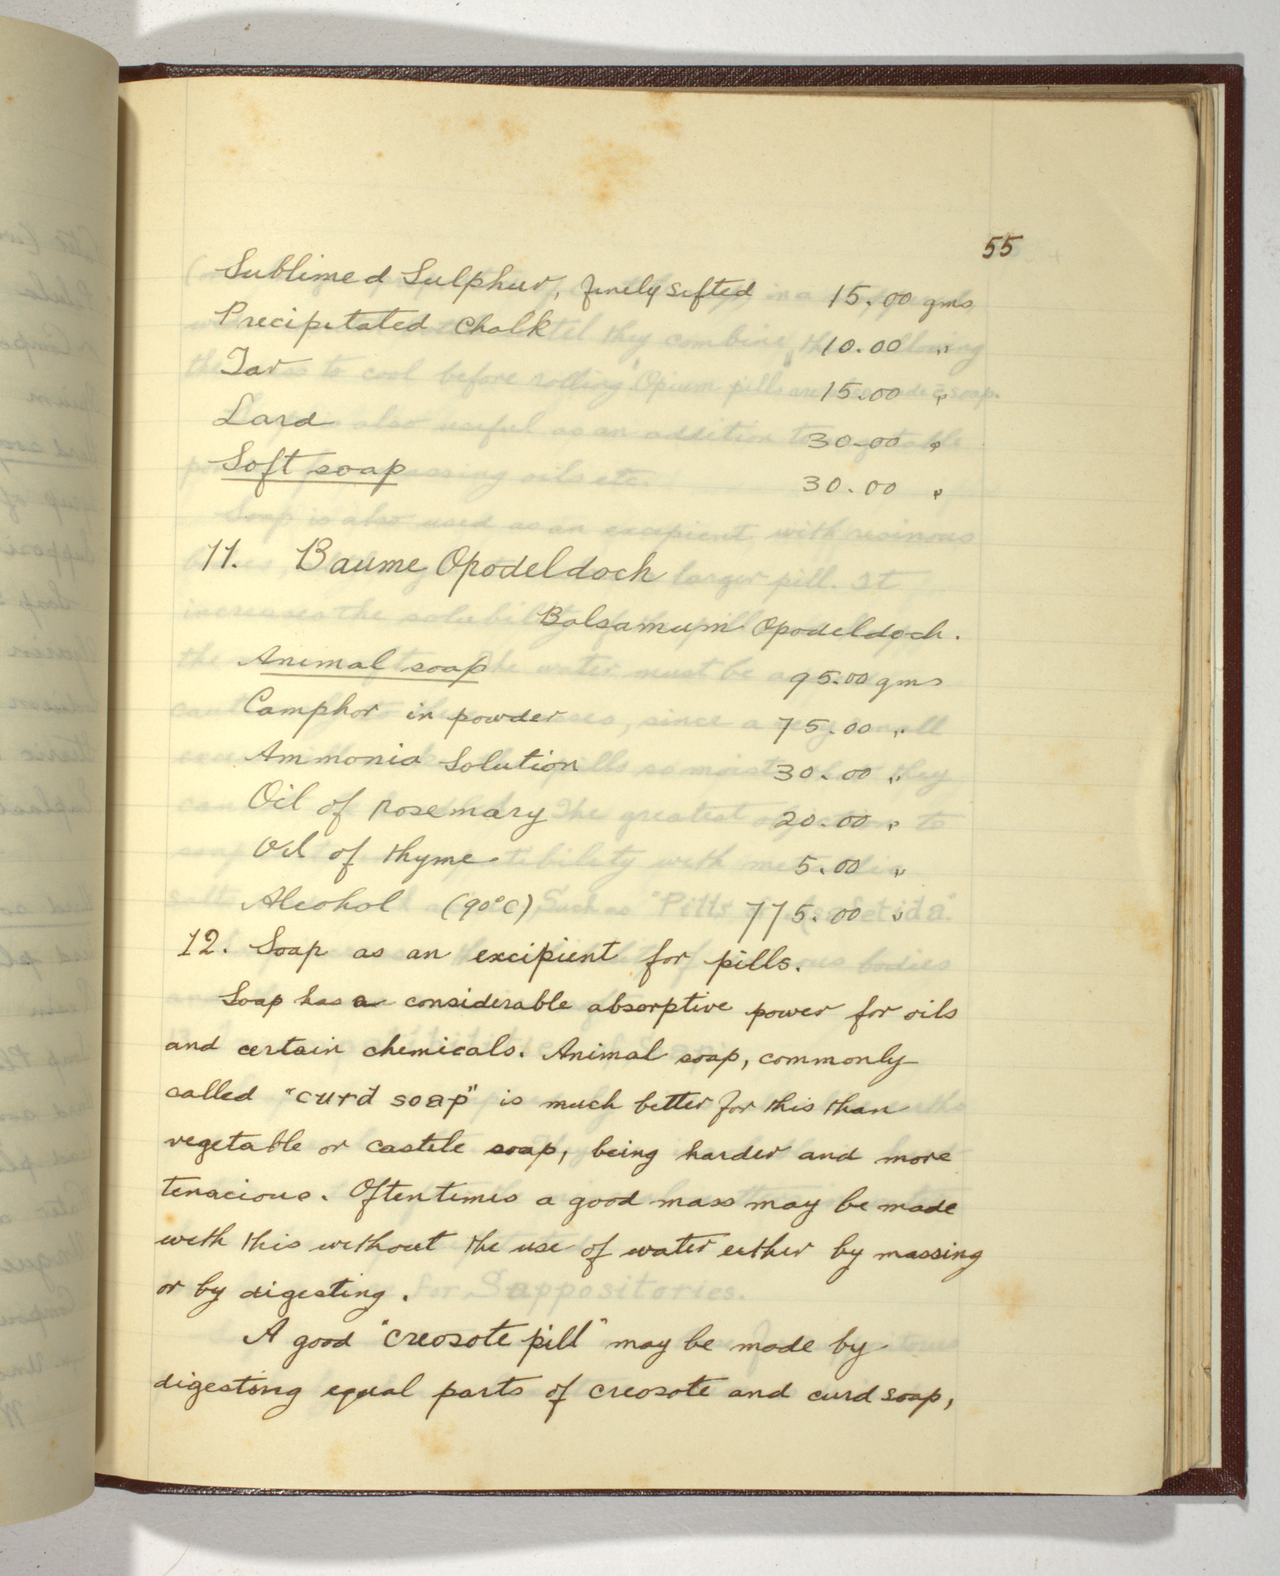 55
Sublimed Sulphur, finely sifted 15.00 gms
Precipitated Chalk 10.00 "
Tar 15.00 "
Lard 30.00 "
Soft soap 30.00 "
11. Baume Opodeldoch
Balsamum Opodeldoch.
Animal soap 95.00 gms
Camphor in powder 75.00 "
Ammonia Solution 30.00 "
Oil of rosemary 20.00 "
Oil of thyme 5.00 "
Alcohol (90°C) 775.00 "
12. Soap as an excipient for pills.
Soap has a considerable absorptive power for oils
and certain chemicals. Animal soap, commonly
called "curd soap" is much better for this than
vegetable or castile soap, being harder and more
tenacious. Oftentimes a good mass may be made
with this without the use of water either by massing
or by digesting.
A good "creosote pill" may be made by
digesting equal parts of creosote and curd soap,